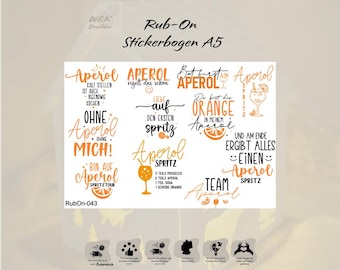 Rub-On
Stickerbogen A5
Aperol
KALT STELLEN
IST AUCH
IRGENDWIE
KOCHEN
APEROL
regelt das schon
Bist hast
APEROL
Aperol
SPRITZ
OHNE
Aperol
OHNE
MICH!
Liebe
auf
DEN ERSTEN
spritz
Du bist die
ORANGE
IN MEINEM
Aperol
UND AM ENDE
ERGIBT ALLES
EINEN
Aperol
SPRITZ
BIN AUF
Aperol
SPRITZTOUR
Aperol
SPRITZ
3 TEILE PROSECCO
2 TEILE APEROL
1 TEIL SODA
1 SCHEIBE ORANGE
TEAM
Aperol
RubOn-043